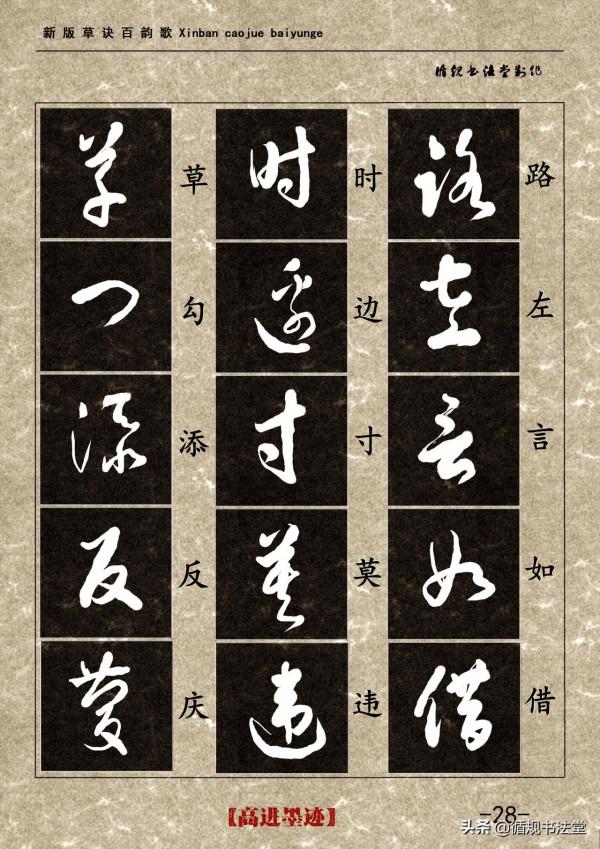 新版草诀百韵歌 Xinban caojue baiyunge
循规书法堂制作
路左言如借
时边寸莫违
草勾添反庆
【高进墨迹】
-28-
头条 @循规书法堂